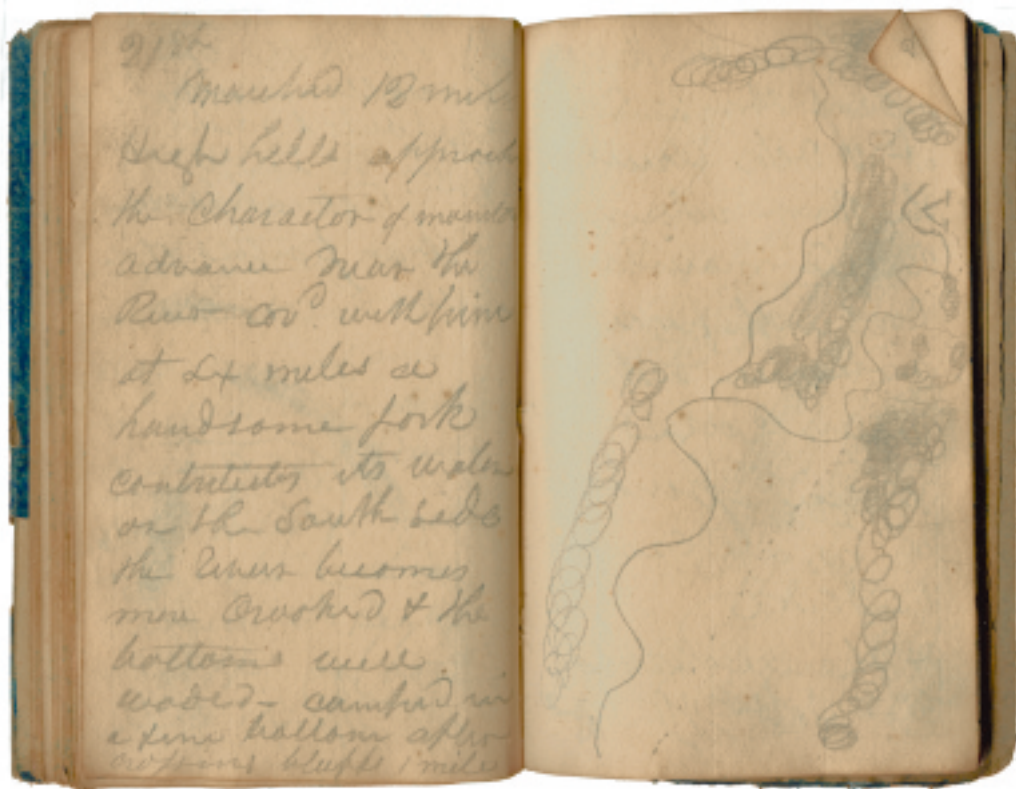 27th
Marched 12 mil
High hills approch
the Charactor of mountn
advance near the
River covd with pine
at six miles a
handsome fork
contributes its water
on the South side
the River becomes
more Crooked & the
bottoms well
wooded - camped in
a fine bottom after
crossing bluffs 1 mile